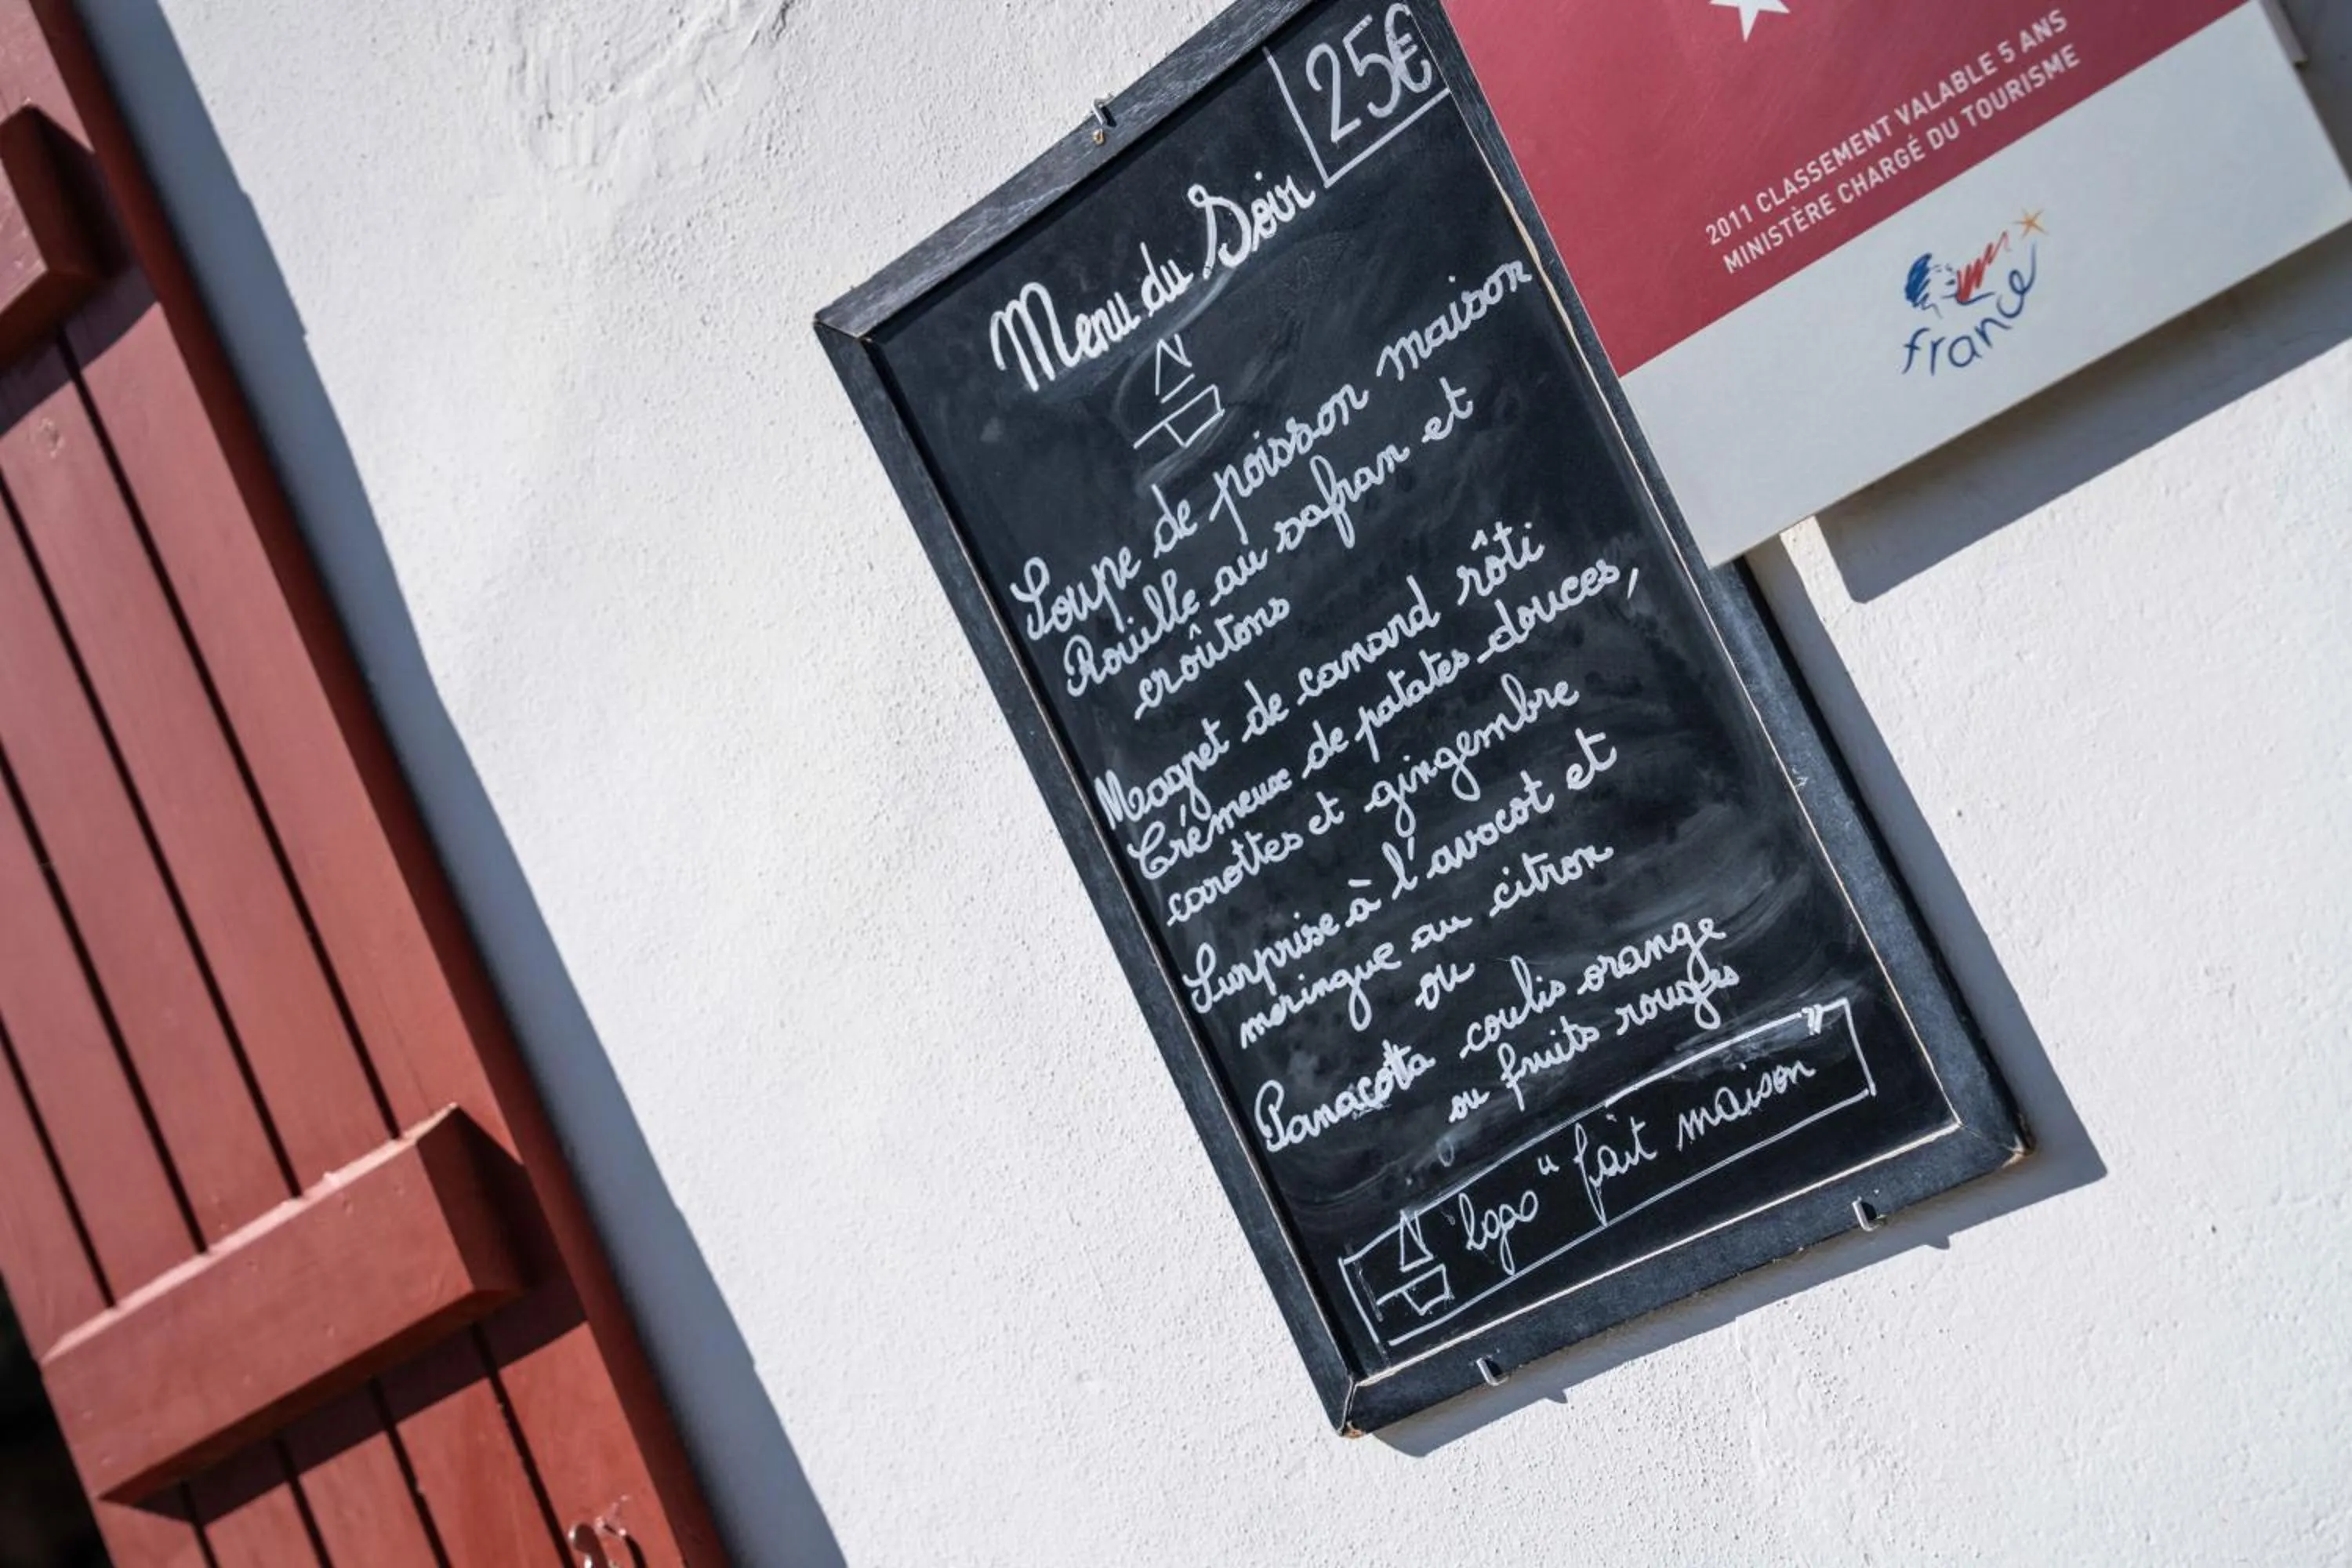 25€
Menu du Soir
Soupe de poisson maison
Rouille au safran et
croûtons
Magret de canard rôti
Crémeux de patates douces,
carottes et gingembre
Surprise à l'avocat et
meringue au citron
ou
Panacotta coulis orange
ou fruits rouges
logo "fait maison"
2011 CLASSEMENT VALABLE 5 ANS
MINISTÈRE CHARGÉ DU TOURISME
france